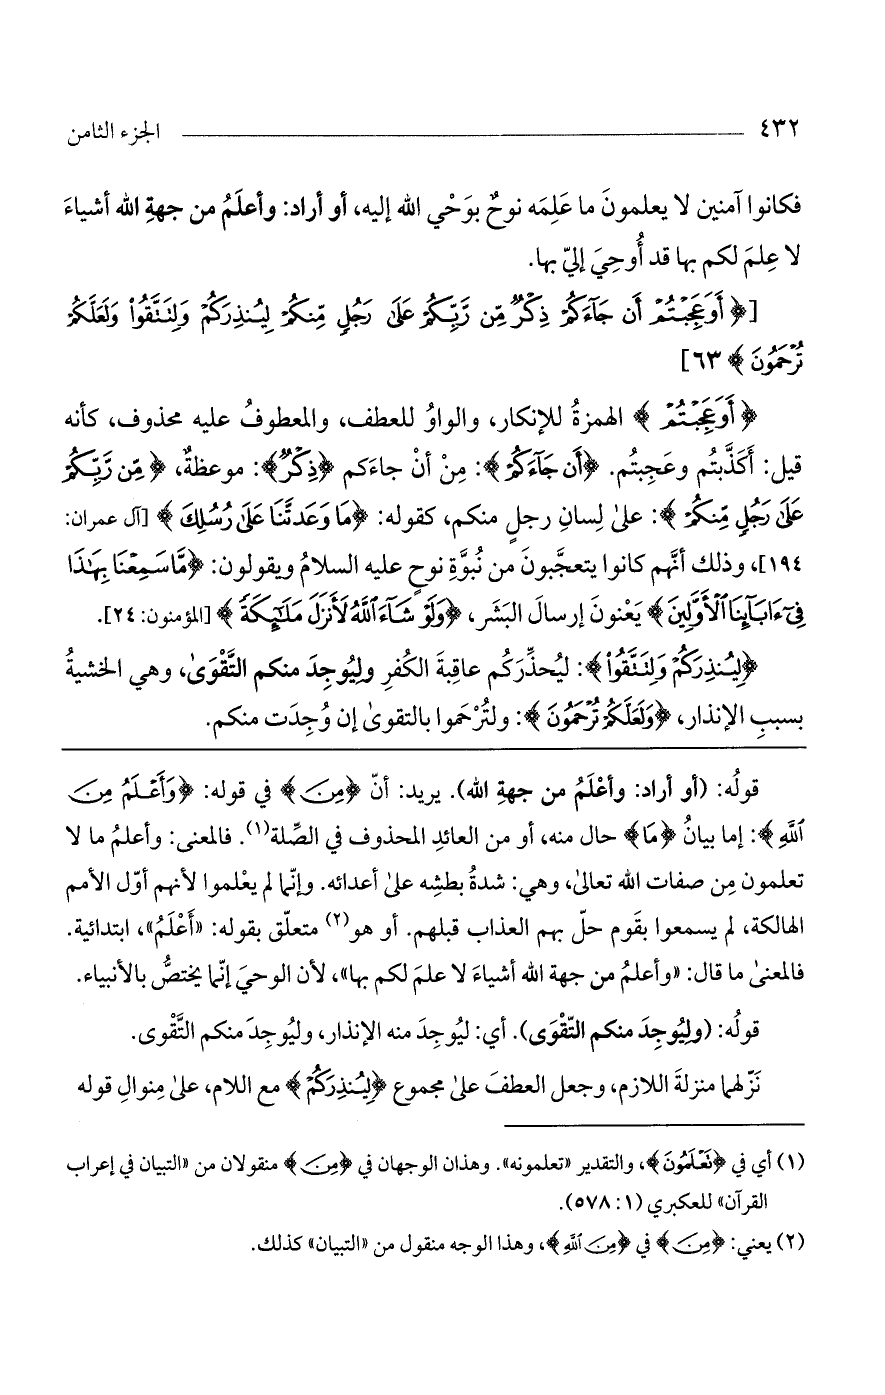 ٤٣٢ الجزء الثامن
فكانوا آمنين لا يعلمونَ ما عَلِمَه نوحٌ بوَحْي الله إليه، أو أراد: وأعلَمُ من جهةِ الله أشياءَ
لا عِلمَ لكم بها قد أُوحِيَ إليّ بها.
[﴿أَوَعَجِبْتُمْ أَن جَآءَكُمْ ذِكْرٌ مِّن رَّبِّكُمْ عَلَىٰ رَجُلٍ مِّنكُمْ لِيُنذِرَكُمْ وَلِتَتَّقُوا۟ وَلَعَلَّكُمْ
تُرْحَمُونَ﴾ ٦٣]
﴿أَوَعَجِبْتُمْ﴾ الهمزةُ للإنكار، والواوُ للعطف، والمعطوفُ عليه محذوف، كأنه
قيل: أَكَذَّبتُم وعَجِبتُم. ﴿أَن جَآءَكُمْ﴾: مِنْ أنْ جاءَكم ﴿ذِكْرٌ﴾: موعظةٌ، ﴿مِّن رَّبِّكُمْ
عَلَىٰ رَجُلٍ مِّنكُمْ﴾: علىٰ لِسانِ رجلٍ منكم، كقوله: ﴿مَا وَعَدتَّنَا عَلَىٰ رُسُلِكَ﴾ [آل عمران:
١٩٤]، وذلك أنَّهم كانوا يتعجَّبونَ من نُبوَّةِ نوحٍ عليه السلامُ ويقولون: ﴿مَّا سَمِعْنَا بِهَٰذَا
فِىٓ ءَابَآئِنَا ٱلْأَوَّلِينَ﴾ يَعْنونَ إرسالَ البَشَر، ﴿وَلَوْ شَآءَ ٱللَّهُ لَأَنزَلَ مَلَٰٓئِكَةً﴾ [المؤمنون: ٢٤].
﴿لِيُنذِرَكُمْ وَلِتَتَّقُوا۟﴾: ليُحذِّرَكُم عاقِبةَ الكُفرِ وليُوجِدَ منكم التَّقْوَىٰ، وهي الخشيةُ
بسببِ الإنذار، ﴿وَلَعَلَّكُمْ تُرْحَمُونَ﴾: ولتُرْحَموا بالتقوىٰ إن وُجِدَت منكم.
قولُه: (أو أراد: وأعْلَمُ من جهةِ الله). يريد: أنّ ﴿مِنَ﴾ في قوله: ﴿وَأَعْلَمُ مِنَ
ٱللَّهِ﴾: إما بيانُ ﴿مَا﴾ حال منه، أو من العائدِ المحذوف في الصِّلة(١). فالمعنى: وأعلمُ ما لا
تعلمون مِن صفات الله تعالىٰ، وهي: شدةُ بطشِه علىٰ أعدائه. وإنّما لم يعْلموا لأنهم أوّل الأمم
الهالكة، لم يسمعوا بقَوم حلّ بهم العذاب قبلهم. أو هو(٢) متعلّق بقوله: «أَعْلَمُ»، ابتدائية.
فالمعنىٰ ما قال: «وأعلمُ من جهة الله أشياءَ لا علمَ لكم بها»، لأن الوحيَ إنّما يختصُّ بالأنبياء.
قولُه: (وليُوجِدَ منكم التّقْوَى). أي: ليُوجِدَ منه الإنذار، وليُوجِدَ منكم التَّقْوى.
نَزّلهما منزلةَ اللازم، وجعل العطفَ علىٰ مجموع ﴿لِيُنذِرَكُمْ﴾ مع اللام، علىٰ مِنوالِ قوله
(١) أي في ﴿تَعْلَمُونَ﴾، والتقدير «تعلمونه». وهذان الوجهان في ﴿مِنَ﴾ منقولان من «التبيان في إعراب
القرآن» للعكبري (١: ٥٧٨).
(٢) يعني: ﴿مِنَ﴾ في ﴿مِنَ ٱللَّهِ﴾، وهذا الوجه منقول من «التبيان» كذلك.